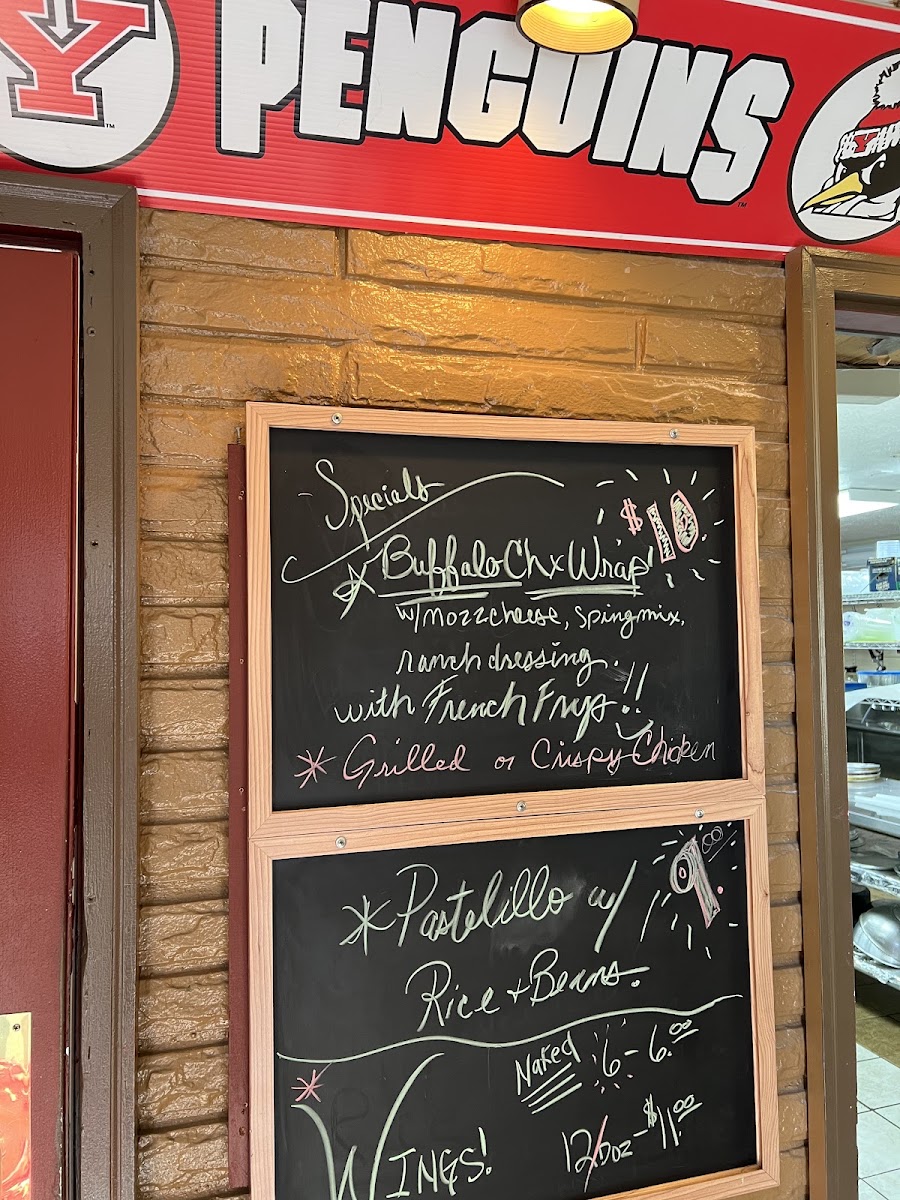 Y
PENGUINS
Y
Specials
$10
* Buffalo Chx Wrap!
w/mozz cheese, spingmix,
ranch dressing.
with French Frys!!
* Grilled or Crispy Chicken
9.00
* Pastelillo w/
Rice + Beans.
* WINGS!
Naked 6 - 6.00
12/DOZ - $11.00